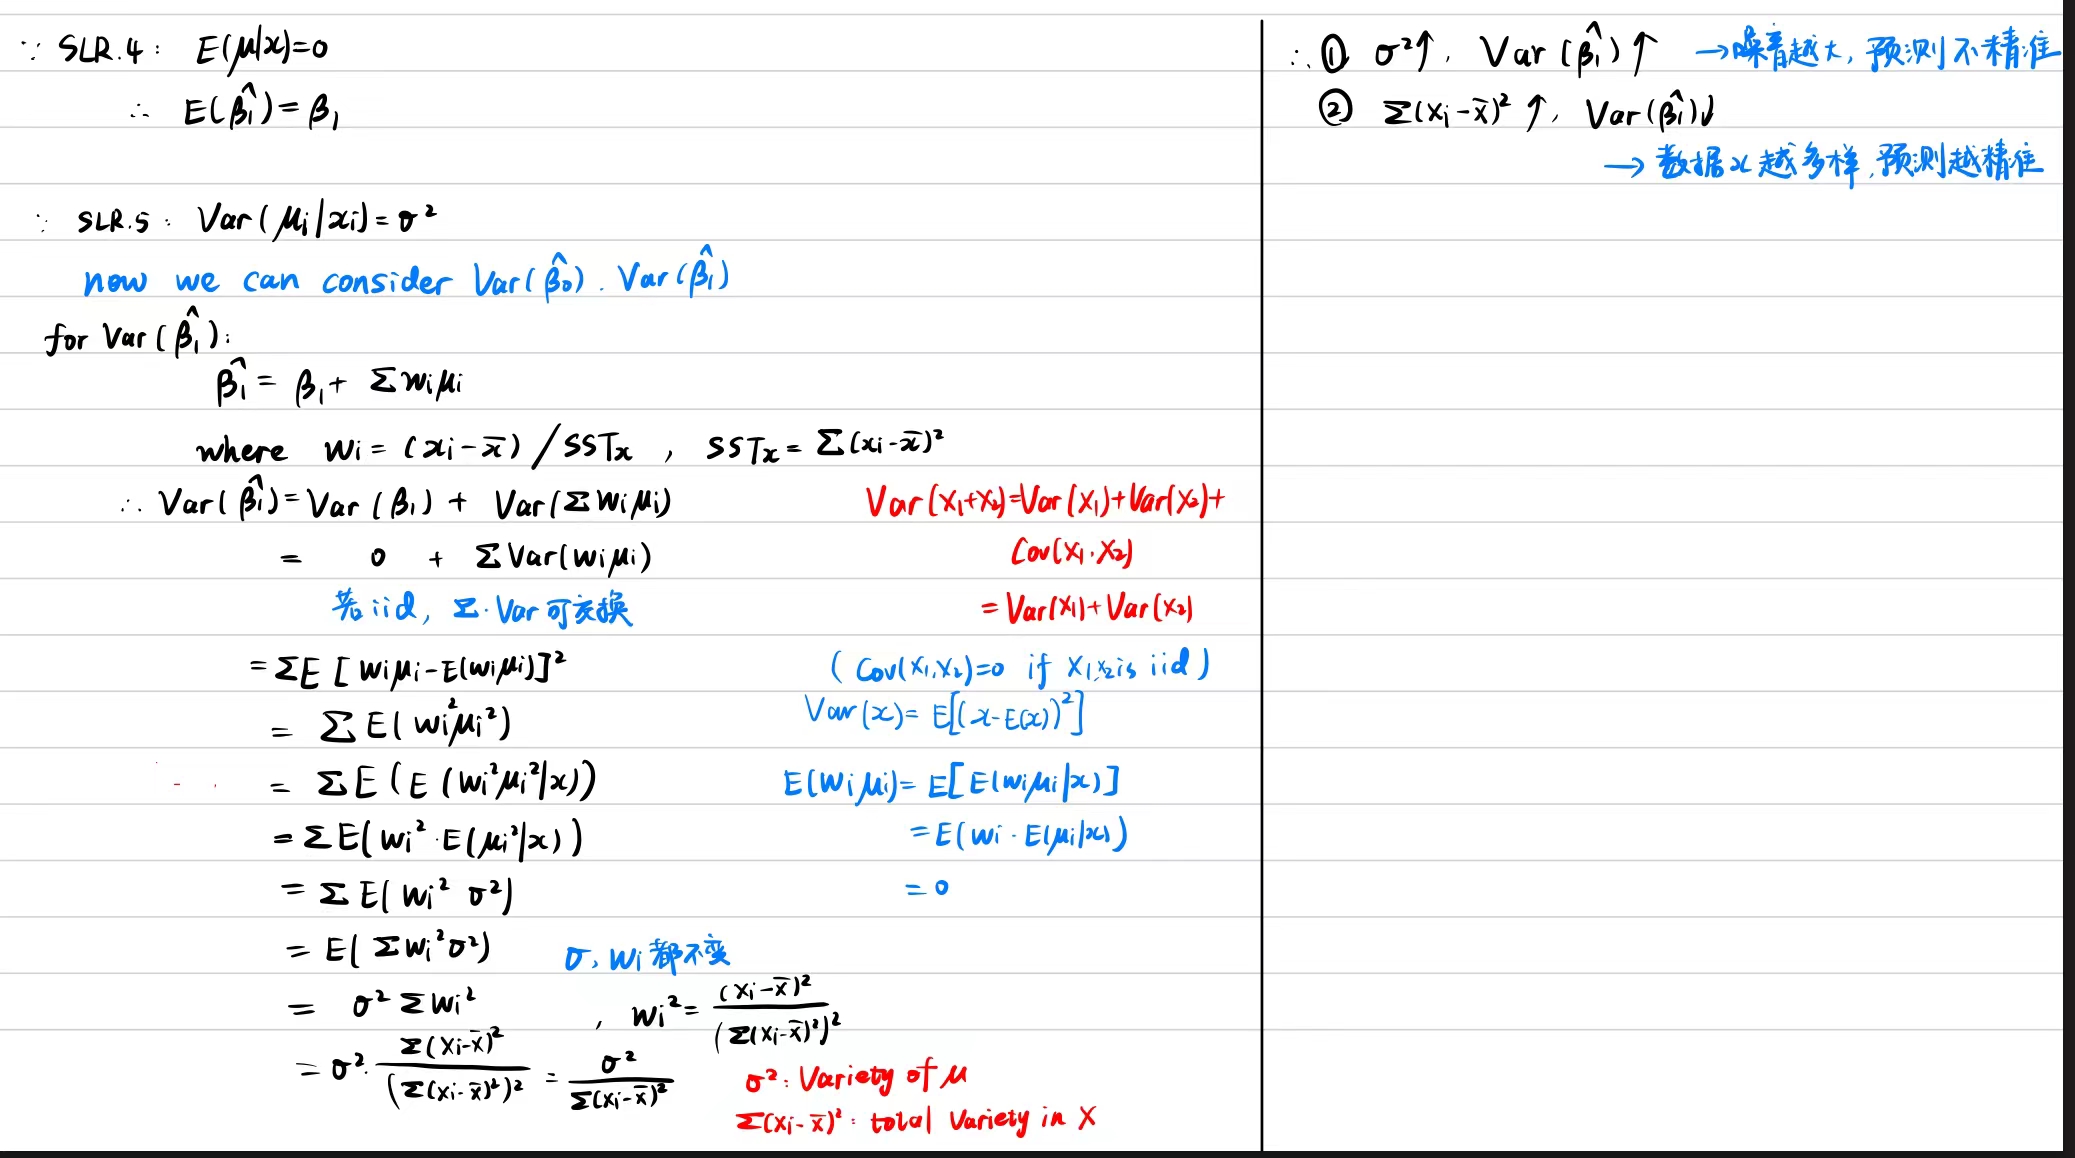 ∵ SLR.4: E(μ|x)=0
∴ E(β̂₁)=β₁
∵ SLR.5: Var(μi|xi)=σ²
now we can consider Var(β̂₀). Var(β̂₁)
for Var(β̂₁):
β̂₁ = β₁ + Σwiμi
where wi = (xi-x̄)/SSTx , SSTx = Σ(xi-x̄)²
∴ Var(β̂₁) = Var(β₁) + Var(Σwiμi)
= 0 + ΣVar(wiμi)
若iid, Σ·Var可交换
= ΣE[wiμi-E(wiμi)]²
= ΣE(wi²μi²)
= ΣE(E(wi²μi²|x))
= ΣE(wi²·E(μi²|x))
= ΣE(wi² σ²)
= E(Σwi²σ²) σ, wi都不变
= σ²Σwi² , wi² = (xi-x̄)²/(Σ(xi-x̄)²)²
= σ²·Σ(xi-x̄)²/(Σ(xi-x̄)²)² = σ²/Σ(xi-x̄)²
Var(x₁+x₂)=Var(x₁)+Var(x₂)+
Cov(x₁.x₂)
= Var(x₁)+Var(x₂)
(Cov(x₁,x₂)=0 if x₁,x₂ is iid)
Var(x) = E[(x-E(x))²]
E(wiμi) = E[E(wiμi|x)]
= E(wi·E(μi|x))
= 0
σ²: Variety of μ
Σ(xi-x̄)²: total Variety in X
∴ ① σ²↑, Var(β̂₁)↑ → 噪音越大, 预测不精准
② Σ(xi-x̄)²↑, Var(β̂₁)↓
→ 数据x越多样,预测越精准